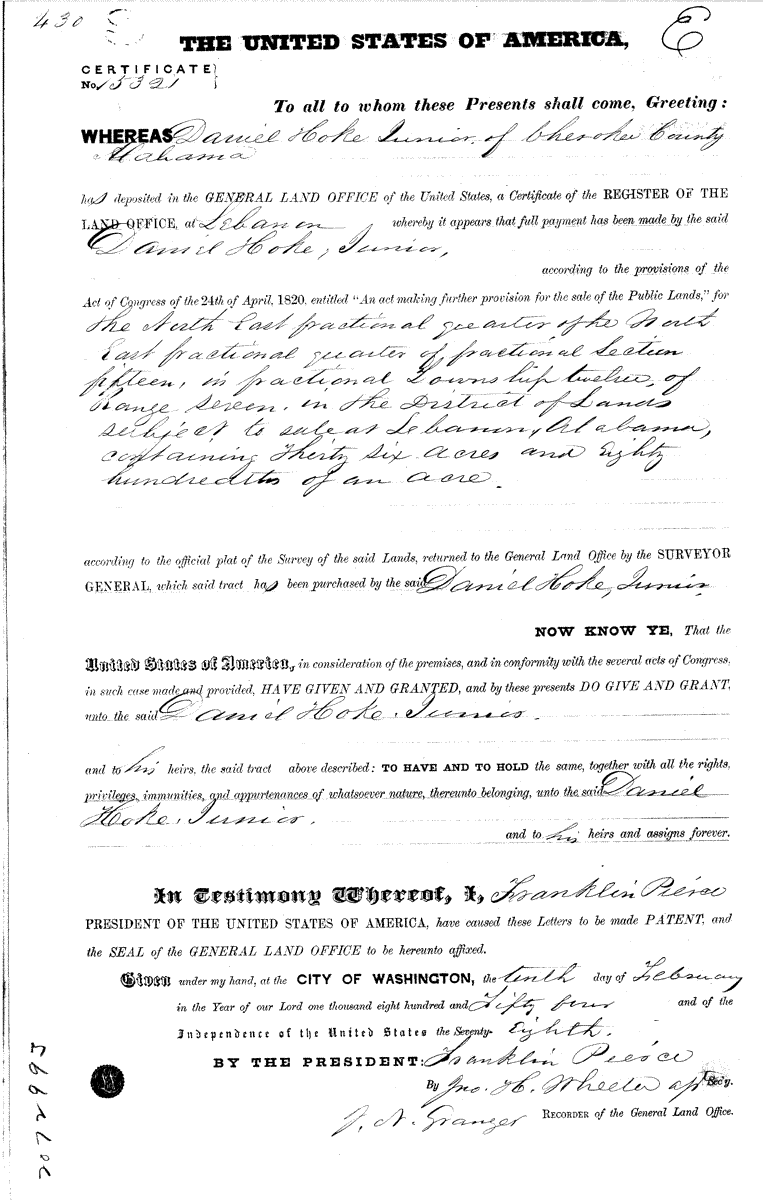 430
THE UNITED STATES OF AMERICA,
E
CERTIFICATE
No. 15321
To all to whom these Presents shall come, Greeting:
WHEREAS Daniel Hoke Junior, of Cherokee County
Alabama
has deposited in the GENERAL LAND OFFICE of the United States, a Certificate of the REGISTER OF THE
LAND OFFICE, at Lebanon whereby it appears that full payment has been made by the said
Daniel Hoke, Junior,
according to the provisions of the
Act of Congress of the 24th of April, 1820, entitled "An act making further provision for the sale of the Public Lands," for
the North East fractional quarter of the North
East fractional quarter of fractional Section
fifteen, in fractional Township twelve, of
Range seven, in the District of Lands
subject to sale at Lebanon, Alabama,
containing Thirty six acres and Eighty
hundredths of an acre.
according to the official plat of the Survey of the said Lands, returned to the General Land Office by the SURVEYOR
GENERAL, which said tract has been purchased by the said Daniel Hoke, Junior,
NOW KNOW YE, That the
United States of America, in consideration of the premises, and in conformity with the several acts of Congress,
in such case made and provided, HAVE GIVEN AND GRANTED, and by these presents DO GIVE AND GRANT,
unto the said Daniel Hoke, Junior.
and to his heirs, the said tract above described: TO HAVE AND TO HOLD the same, together with all the rights,
privileges, immunities, and appurtenances of whatsoever nature, thereunto belonging, unto the said Daniel
Hoke, Junior.
and to his heirs and assigns forever.
In Testimony Whereof, I, Franklin Pierce
PRESIDENT OF THE UNITED STATES OF AMERICA, have caused these Letters to be made PATENT, and
the SEAL of the GENERAL LAND OFFICE to be hereunto affixed.
Given under my hand, at the CITY OF WASHINGTON, the tenth day of February
in the Year of our Lord one thousand eight hundred and Fifty four and of the
Independence of the United States the Seventy-Eighth.
BY THE PRESIDENT: Franklin Pierce
By Jno. H. Wheeler Sec'y.
J. N. Granger RECORDER of the General Land Office.
2072965